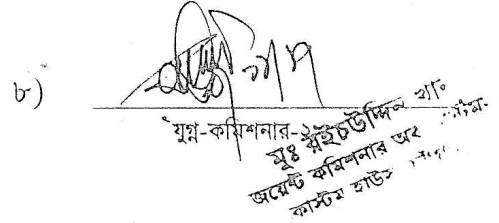 ৮)
যুগ্ন-কমিশনার-২
মুঃ রইচউদ্দিন খান
জয়েন্ট কমিশনার অব
কাস্টম হাউস